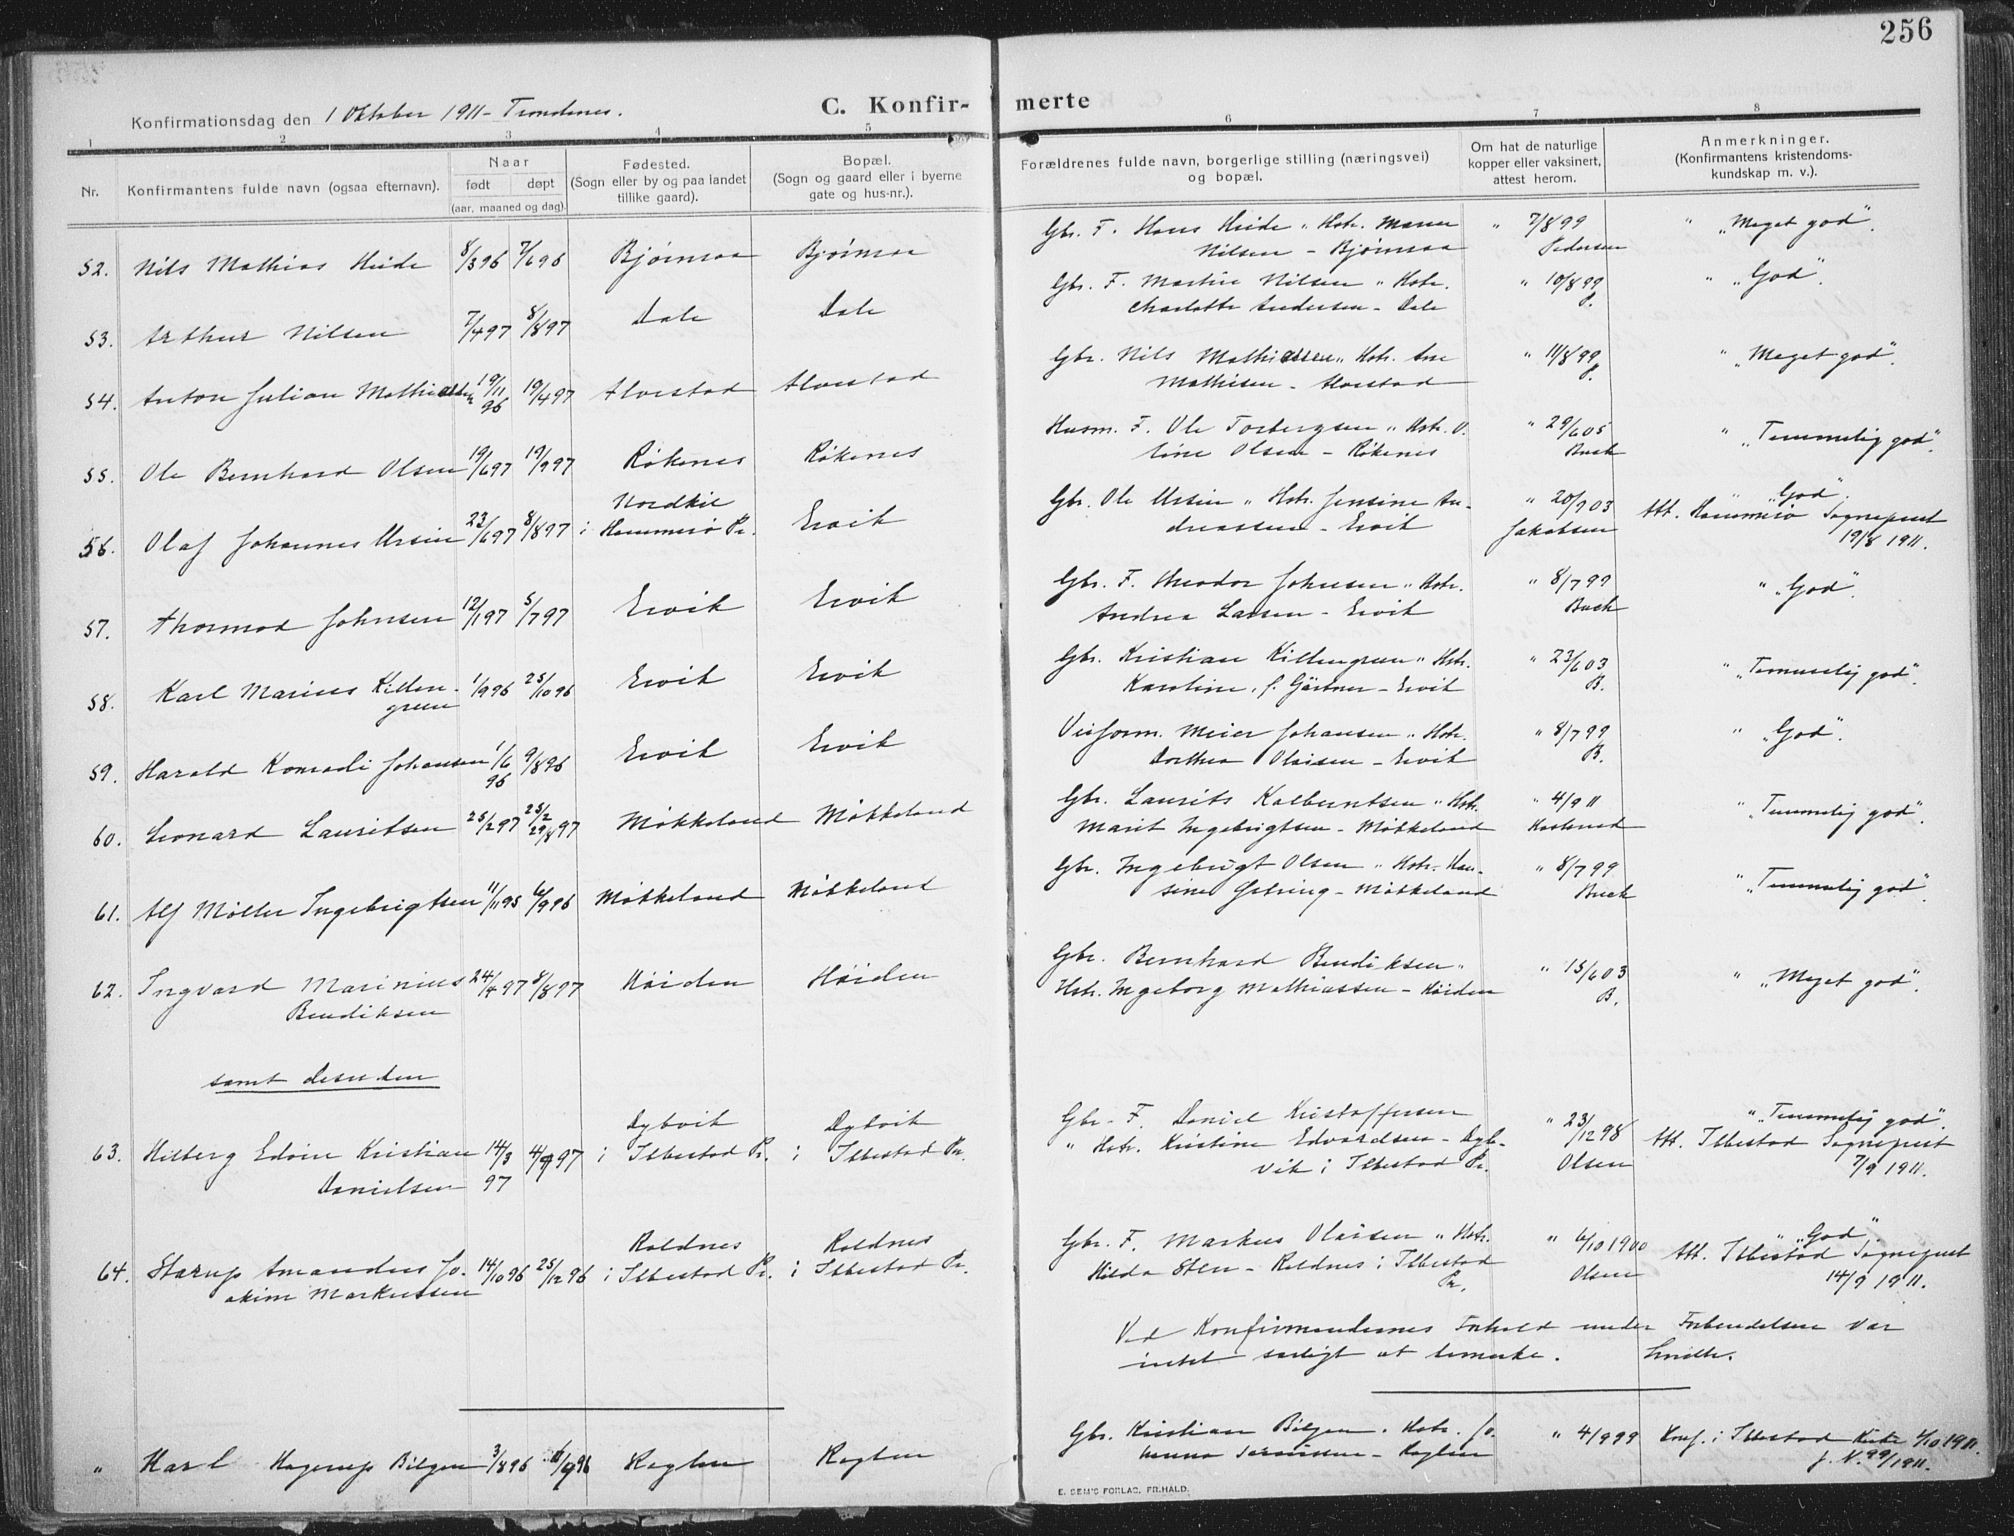 256
Konfirmationsdag den 1 Oktober 1911 - Trondenes.
C. Konfir- merte
1 2 3 4 5 6 7 8
Nr.
Konfirmantens fulde navn (ogsaa efternavn).
Naar
født døpt
(aar, maaned og dag).
Fødested.
(Sogn eller by og paa landet
tillike gaard).
Bopæl.
(Sogn og gaard eller i byerne
gate og hus-nr.).
Forældrenes fulde navn, borgerlige stilling (næringsvei)
og bopæl.
Om hat de naturlige
kopper eller vaksinert,
attest herom.
Anmerkninger.
(Konfirmantens kristendoms-
kundskap m. v.).
52. Nils Mathias Heide 8/3 96 7/6 96 Bjørnraa Bjørnraa Gbr. F. Hans Heide " Hstr. Maren " 7/8 99 " "Meget god".
Nilsen - Bjørnraa Pedersen
53. Arthur Nilsen 7/4 97 8/8 97 Dale Dale Gbr. F. Martin Nilsen " Hstr. " 10/8 99 " "God".
Charlotte Andersen - Dale P.
54. Anton Julian Mathiassen 19/11 96 19/4 97 Alvestad Alvestad Gbr. Nils Mathiassen " Hstr. Ane " 11/8 99 " "Meget god".
Mathisen - Alvestad P.
55. Ole Bernhard Olsen 19/6 97 19/9 97 Røkenes Røkenes Husm. F. Ole Torbergsen " Hstr. O- " 29/6 05 " "Temmelig god".
line Olsen - Røkenes Buck
56. Olaf Johannes Ursin 23/6 97 8/8 97 Nordkil
i Hammerø Pr. Ervik Gbr. Ole Ursin " Hstr. Jensine An- " 20/9 03 " "God".
dreassen - Ervik Jakobsen Att. Hammerø Sogneprest
19/8 1911.
57. Thormod Johnsen 12/1 97 5/7 97 Ervik Ervik Gbr. F. Theodor Johnsen " Hstr. " 8/7 99 " "God".
Andrea Larsen - Ervik Buck
58. Karl Marius Killen- 1/9 96 25/10 96 Ervik Ervik Gbr. Kristian Killengreen " Hstr. " 23/6 03 " "Temmelig god".
green Karoline, f. Gärtner - Ervik B.
59. Harald Konradi Johansen 1/6 96 9/8 96 Ervik Ervik Veiform. Meier Johansen " Hstr. " 8/7 99 " "God".
Dorthea Olaisen - Ervik B.
60. Leonard Lauritsen 25/2 97 25/2 29/8 97 Møkkeland Møkkeland Gbr. Laurits Kolberntsen " Hstr. " 4/9 11 " "Temmelig god".
Marit Ingebrigtsen - Møkkeland
61. Alf Møller Ingebrigtsen 11/11 95 6/9 96 Møkkeland Møkkeland Gbr. Ingebrigt Olsen " Hstr. Han- " 8/7 99 " "Temmelig god".
sine - Møkkeland Buck
62. Ingvard Marinius 24/4 97 8/8 97 Høiden Høiden Gbr. Bernhard Bendiksen " " 15/6 03 " "Meget god".
Bendiksen Hstr. Ingeborg Mathiassen - Høiden B.
samt desuden
63. Hilberg Edvin Kristian 14/3 97 4/9 97 Dybvik
i Ibbestad Pr. Dybvik
i Ibbestad Pr. Gbr. F. Daniel Kristoffersen " 23/12 98 " "Temmelig god".
Danielsen " Hstr. Kristine Edvardsen - Dyb- Olsen Att. Ibbestad Sogneprest
vik i Ibbestad Pr. 7/9 1911.
64. Starup Amandus Jo- 14/10 96 25/12 96 Roldnes
i Ibbestad Pr. Roldnes
i Ibbestad Pr. Gbr. F. Markus Olaisen " Hstr. " 6/10 1900 " "God".
akim Markussen Hilda Sten - Roldnes i Ibbestad Olsen Att. Ibbestad Sogneprest
Pr. 14/9 1911.
Ved Konfirmandernes Forhold under Forberedelsen var
intet særligt at bemærke.
" Karl Hagerup Bilgen 3/8 96 6/9 96 Roglen Roglen Gbr. Kristian Bilgen " Hstr. Jo- " 4/9 99 Konf. i Ibbestad Kirke 1/10 1911.
hanna - Roglen f. N. 99/1911.
E. SEM'S FORLAG. FR.HALD.